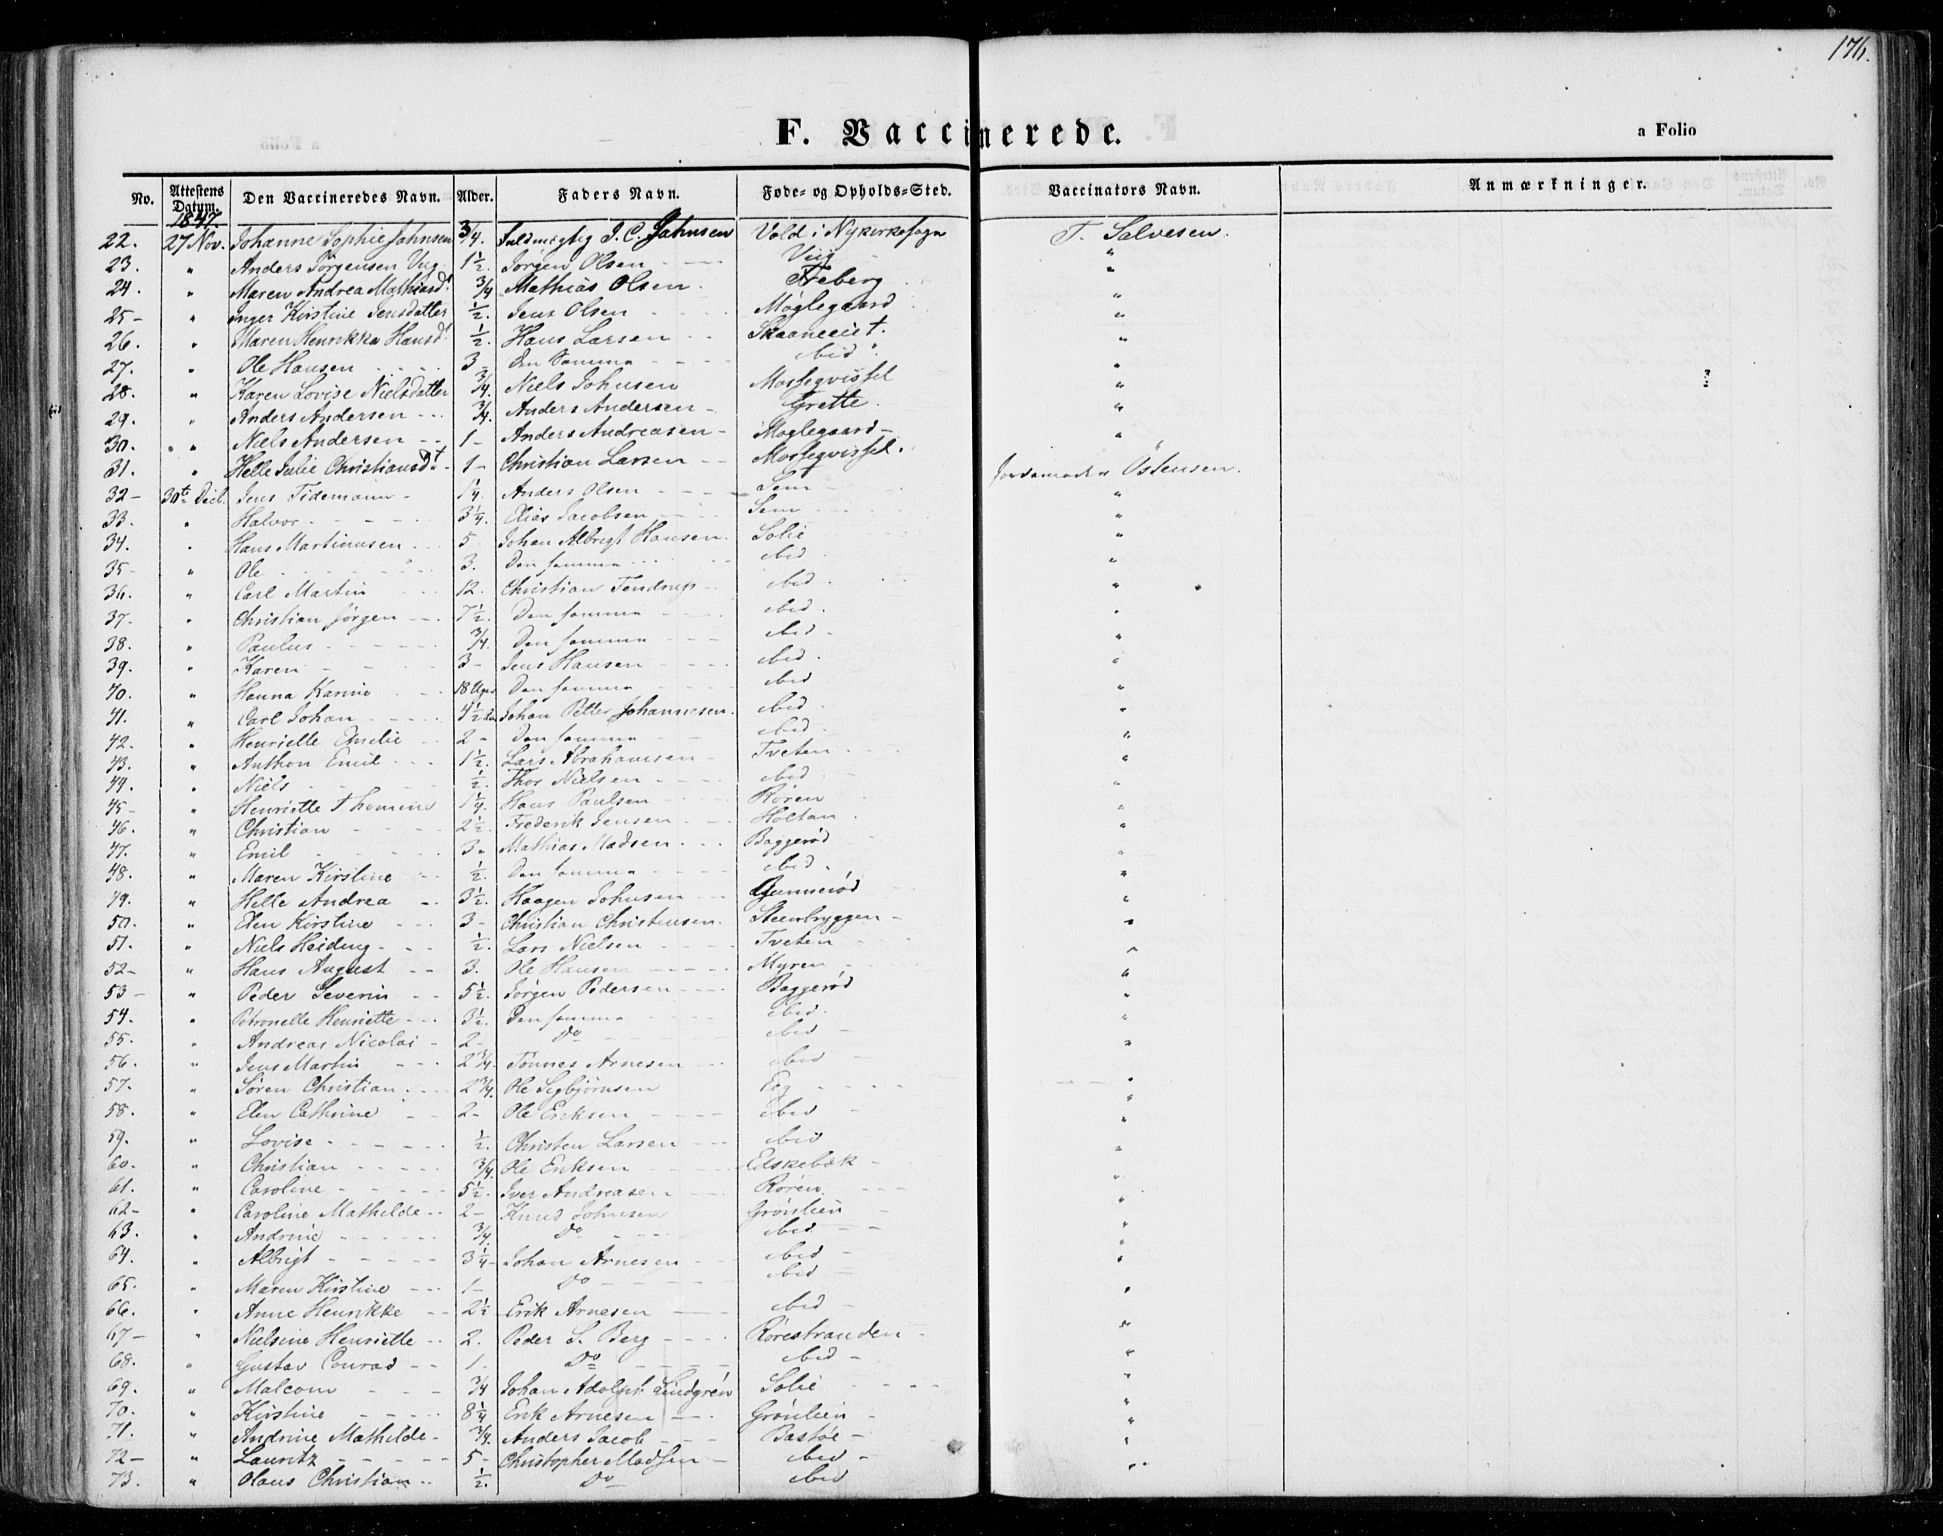 176.
F. Vaccinerede.
a Folio
No. Attestens Datum. Den Vaccineredes Navn. Alder. Faders Navn. Føde- og Opholds-Sted. Vaccinators Navn. Anmærkninger.
1847.
22. 27 Nov. Johanne Sophie Jahnsen 3/4. Fuldmegtig J. C. Jahnsen Vold i Nykirke sogn T. Salvesen.
23. " Anders Jørgensen 1 1/2. Jørgen Olsen "
24. " Maren Andrea Mathiasd. 3/4 Mathias Olsen Freberg "
25 - " Inger Kirstine Jensdatter 1/2. Jens Olsen Møglegaard "
26. " Maren Henrikka Hansd. 1/2. Hans Larsen Skaaneeiet. "
27. " Ole Hansen 3 Den Samme ibid. "
28. " Karen Lovise Nielsdatter 3/4 Niels Johnsen "
29. " Anders Andersen 3/4. Anders Andersen Grette. "
30. " Niels Andersen 1 - Anders Andreasen Moglegaard "
31. " Helle Julie Christiansd. 1 - Christian Larsen
32 - 30te Decb. Jens Tidemann 1/4. Anders Olsen Sem Jordemoder Østensen.
33. " Halvor 3 1/4. Elias Jacobsen Sem "
34. " Hans Martinusen 5 Johan Albregt Hansen. Solie "
35 " Ole 3. Den samme ibid "
36. " Carl Martin 12. Christian Tendrup ibid. "
37 - " Christian Jørgen 7 1/2. Den samme ibid. "
38. " Paulus 3/4. Den samme ibid. "
39. " Karen 3 - Jens Hansen ibid. "
40. " Hanna Karine 18 Uger Den samme ibid. "
41. " Carl Johan 4 1/2 Johan Petter Johannesen. ibid. "
42. " Henriette Emelie 2 - Den samme ibid. "
43. " Anthon Emil 1 1/2. Lars Abrahamsen Tveten "
44. " Niels 1/2. Thor Nielsen ibid "
45 - " Henriette Thomine 1 1/4. Hans Paulsen Røren "
46. " Christian 2 1/2. Frederik Jensen Holtan "
47. " Emil 3 - Mathias Madsen Baggerød "
48. " Maren Kirstine 1/2. Den samme ibid. "
49. " Helle Andrea 3 1/2. Haagen Johnsen Gunnerød "
50. " Elen Kirstine 3 - Christian Christensen. Steenbryggen "
51. " Niels Heiding 1/2. Lars Nielsen Tveten "
52 - " Hans August 3. Ole Hansen Myren "
53 - " Peder Severin 5 1/2. Jørgen Pedersen Baggerød "
54. " Petronelle Henriette 3 1/2. Den samme ibid. "
55. " Andreas Nicolai 2 - Do ibid "
56. " Jens Martin 2 3/4. Tønnes Arnesen ibid "
57. " Søren Christian 2 3/4. Ole Segbjørnsen Eeg "
58. " Elen Cathrine 2 - Ole Eriksen ibid "
59. " Lovise 1/2. Christen Larsen ibid "
60. " Christian 3/4. Ole Eriksen Edskebek "
61. " Caroline 5 1/2. Iver Andreasen Røren "
62 - " Caroline Mathilde 2 - Knud Johnsen Grønlien "
63. " Andrine 3/4. Do ibid "
64. " Albrigt 3 1/4 Johan Arnesen ibid "
65. " Maren Kirstine 1 - Do ibid "
66. " Anne Henrikke 2 1/2 Erik Arnesen ibid "
67 - " Nielsine Henriette 2. Peder S. Berg Rørestranden "
68. " Gustav Conrad 1. Do ibid "
69. " Malcom 3/4 Johan Adolph Lindgren Solie "
70. " Kirstine 8 1/4 Erik Arnesen Grønlien "
71. " Andrine Mathilde 3/4. Anders Jacob Bastøe "
72 - " Lauritz 5 - Christopher Madsen ibid "
73. " Olaus Christian 1/2. Do ibid